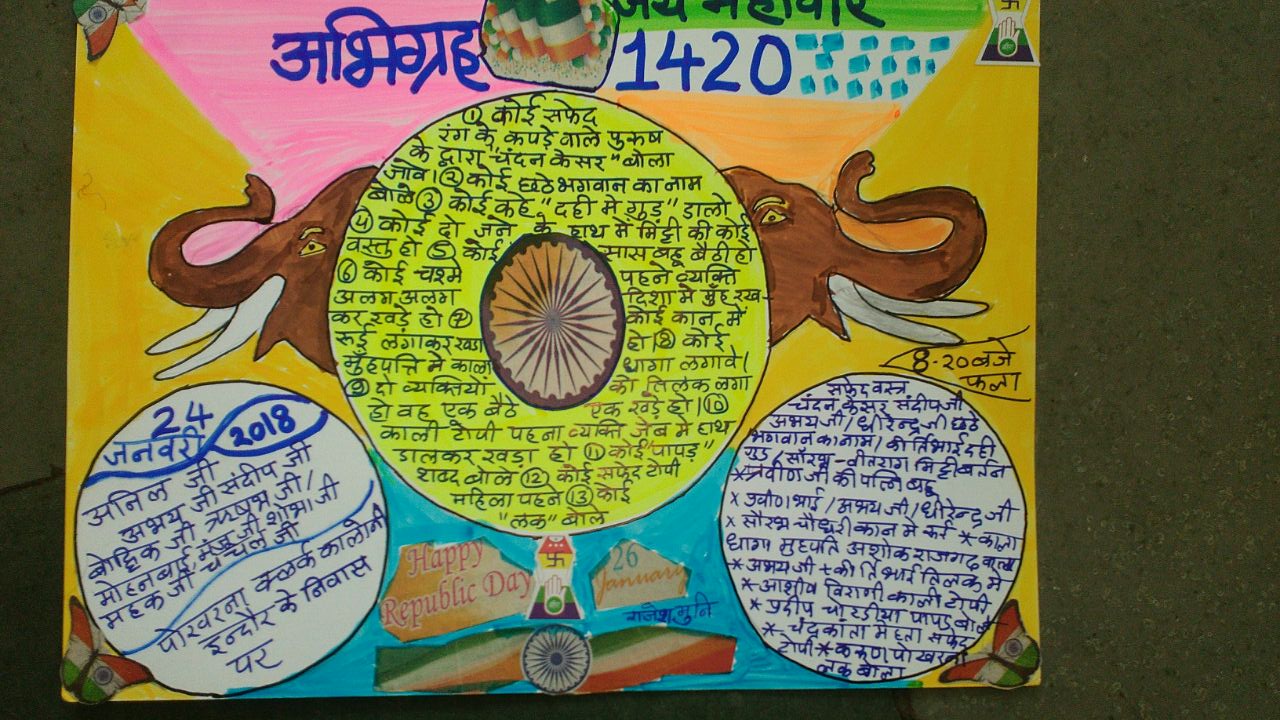 जय महावीर
अभिग्रह
1420
① कोई सफेद
रंग के कपड़े वाले पुरुष
के द्वारा "चंदन केसर" बोला
जावे। ② कोई छठे भगवान का नाम
बोले ③ कोई कहे "दही मे गुड़" डालो
④ कोई दो जने के हाथ में मिट्टी की कोई
वस्तु हो ⑤ कोई सास बहू बैठी हो
⑥ कोई चश्मे पहने व्यक्ति
अलग अलग दिशा मे मुँह रख-
कर खड़े हो ⑦ कोई कान में
रूई लगाकर खडा हो।⑧ कोई
मुँहपत्ति मे काला धागा लगावे।
⑨ दो व्यक्तियों को तिलक लगा
हो वह एक बैठे एक खड़े हो।⑩
काली टोपी पहना व्यक्ति जेब मे हाथ
डालकर खड़ा हो ⑪ कोई "पापड़"
शब्द बोले ⑫ कोई सफेद टोपी
महिला पहने ⑬ कोई
"लक" बोले
24
जनवरी 2018
अनिल जी
अभय जी संदीप जी
बौद्दिक जी ऋषभ जी/
मोहनबाई मंजू जी शोभा जी
महक जी चंचल जी
पोरवरना क्लर्क कालोनी
इन्दौर के निवास
पर
8-20 बजे
फला
सफेद वस्त्र
चंदन केसर संदीप जी
अभय जी/धीरेन्द्र जी छठे
भगवान का नाम/कीर्तिभाई दही
गुड़/सौरभ-वीतराग मिट्टी बर्तन
*प्रवीण जी की पत्नि बहू
x प्रवीण भाई/अभय जी/धीरेन्द्र जी
x सौरभ चौधरी कान मे रूई * काला
धागा मुहपति अशोक राजगढ़ वाला
* अभय जी + कीर्तिभाई तिलक मे
* आशीष विराणी काली टोपी
* प्रदीप चोरडीया पापड़ बोले
* चंद्रकांता मेहता सफेद
टोपी * कंकण पोखरना
लक बोला
Happy
Republic Day
26
January
राजेश मुनि